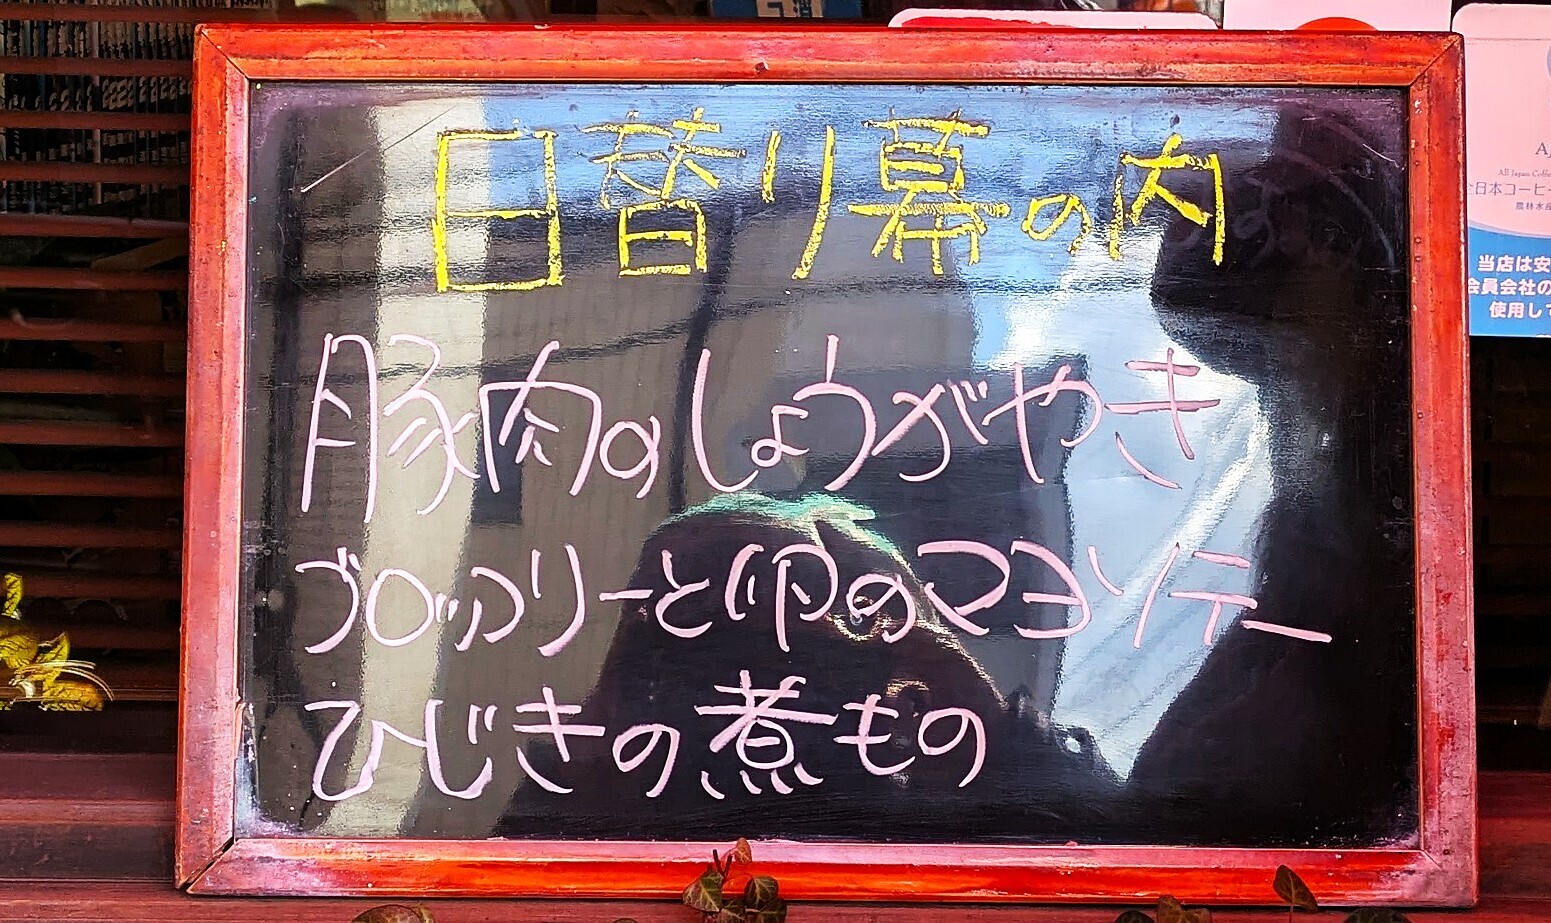 日替り幕の内
豚肉のしょうがやき
ブロッコリーと卵のマヨソテー
ひじきの煮もの
All Japan Coffe
全日本コーヒー
農林水産
当店は安
会員会社の
使用して